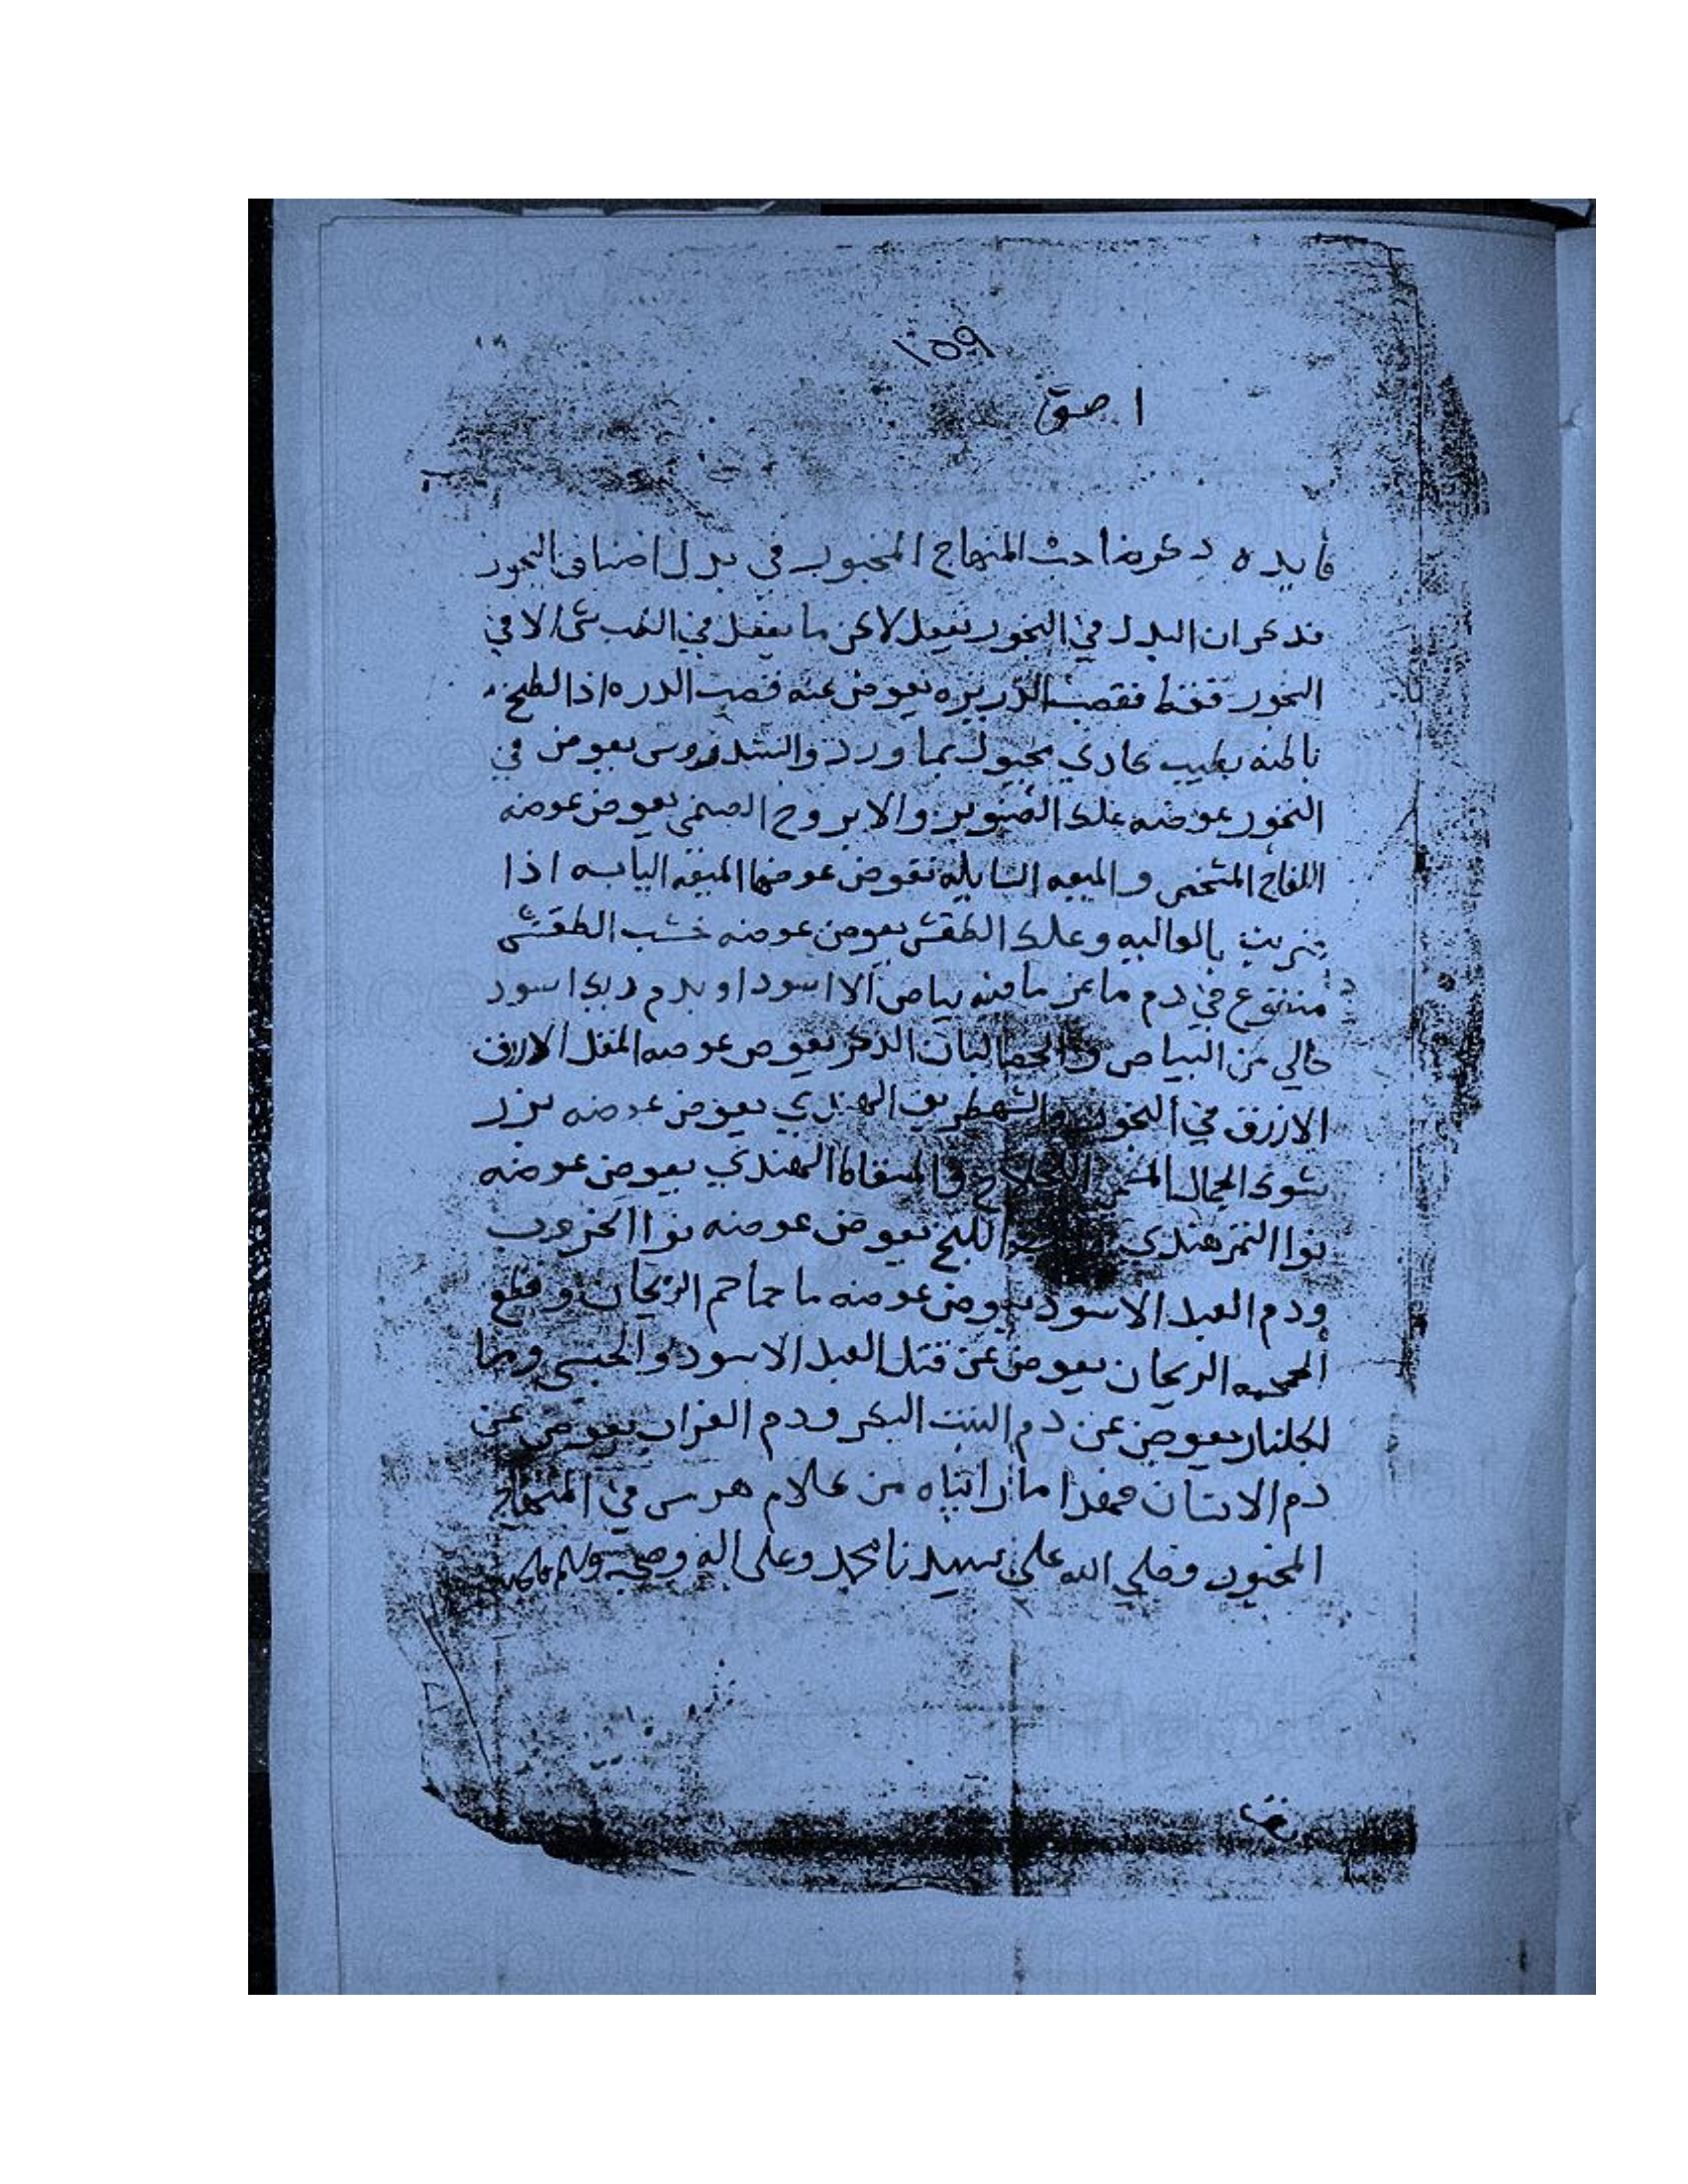 ١٥٩
ا صق
فايده ذكر صاحب المنهاج المخبور في بدل اصناف البخور
فذكر ان البدل في البخور يفعل لاكن ما يفعل في شى الا في
البخور فقط فقصب الذريره يعوض عنه قصب الدره اذا لطخ
باطنه بطيب عادي مجبول بما ورد والسندروس يعوض في
البخور عوضه علك الصنوبر والابروح الصنمي يعوض عوضه
اللفاح المشخص والميعه السايله تعوض عوضها الميعه اليابسه اذا
وعلك الطقش يعوض عوضه خشب الطقش
منقوع في دم ماعز ما فيه بياض الا اسود او بدم ديك اسود
خالي من البياض البان الذكر يعوض عوضه المقل الازرق
الازرق في البخور الهندي يعوض عوضه بزر
الهندي يعوض عوضه
نوا التمر هندي اللبخ يعوض عوضه نوا الخروب
ودم العبد الاسود يعوض عوضه ما حماحم الريحان وقطع
الريحان يعوض عن قتل العبد الاسود والحبشي وما
الجلنار يعوض عن دم البنت البكر ودم الغراب يعوض عن
دم الانسان فهذا ما راتباه من كلام هرمس في المنهاج
المخبور وصلي الله علي سيدنا محمد وعلى اله وصحبه وسلم